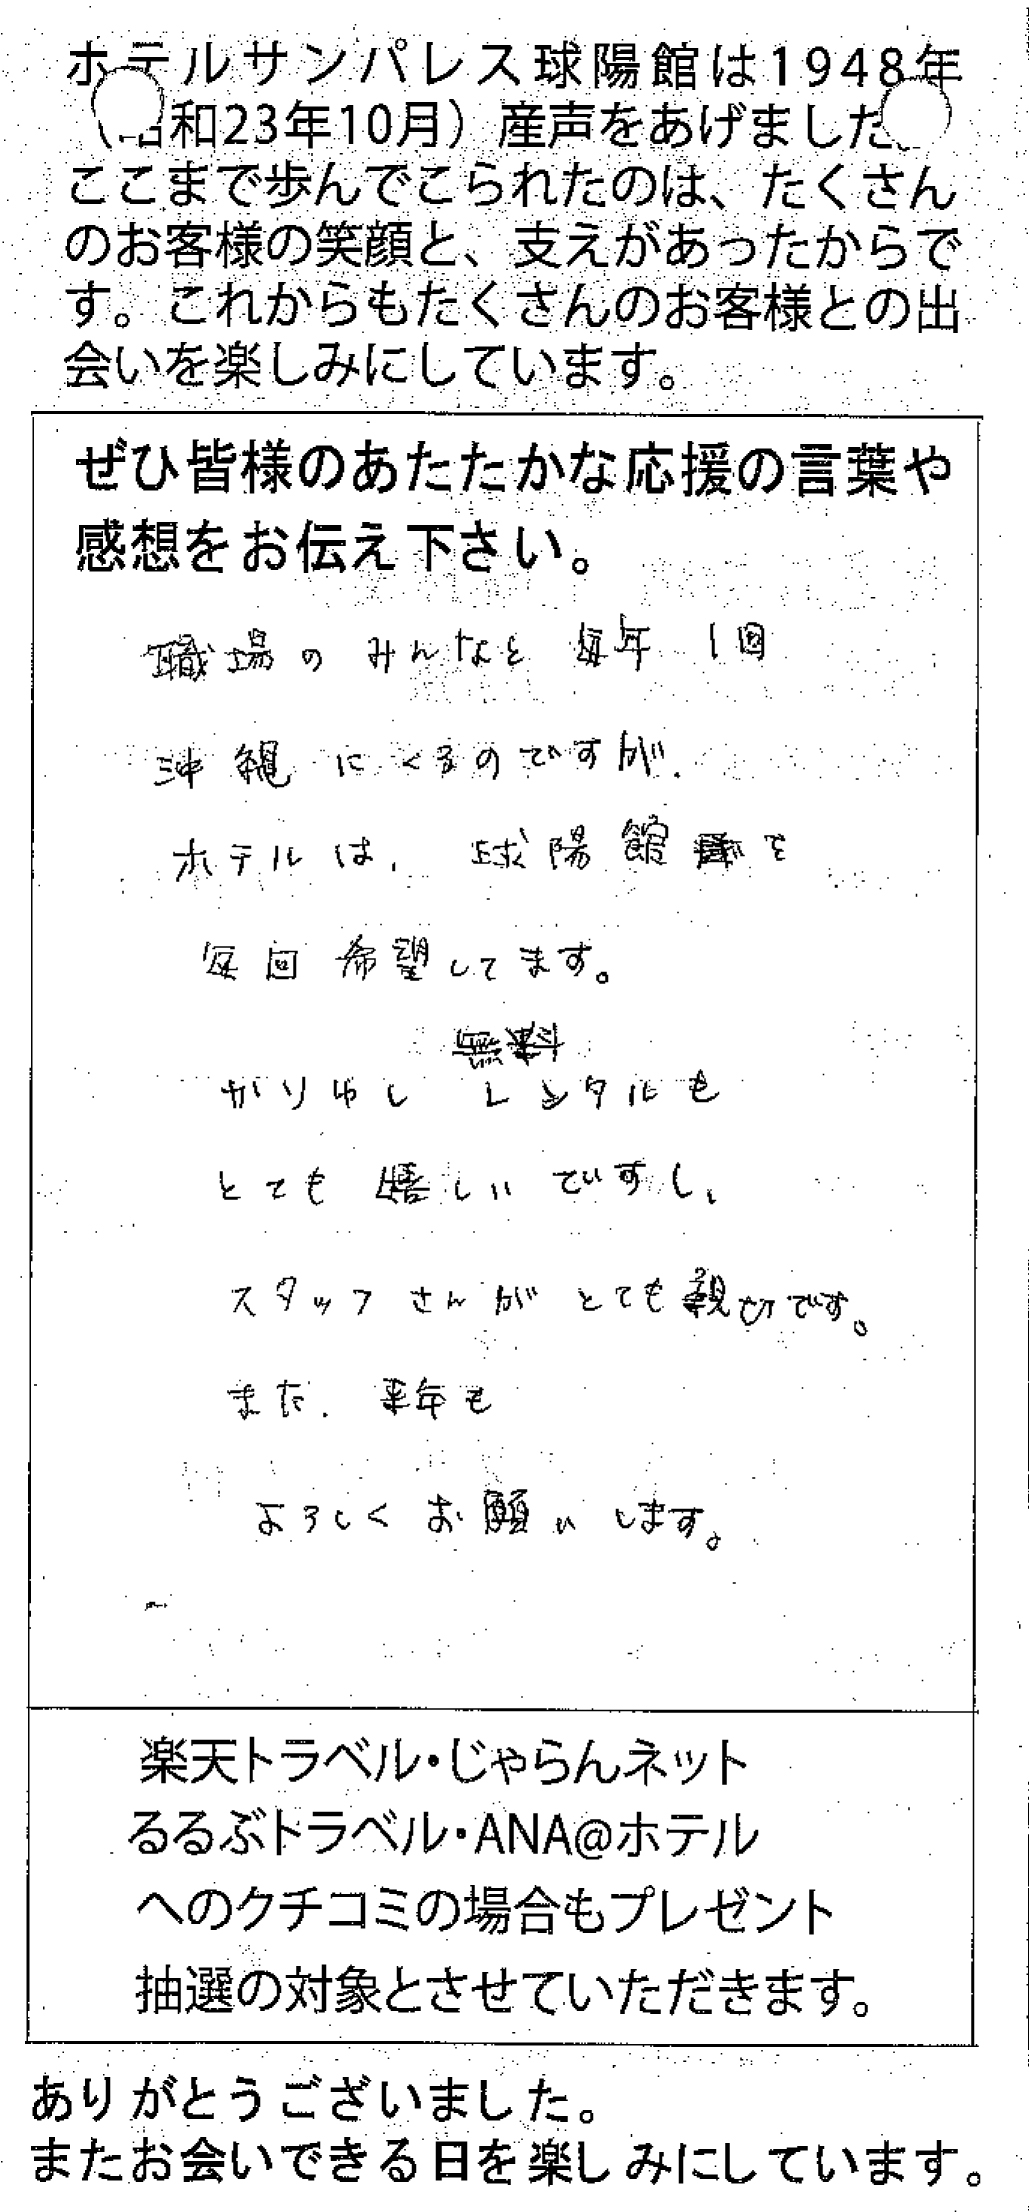 ホテルサンパレス球陽館は1948年
（昭和23年10月）産声をあげました。
ここまで歩んでこられたのは、たくさん
のお客様の笑顔と、支えがあったからで
す。これからもたくさんのお客様との出
会いを楽しみにしています。
ぜひ皆様のあたたかな応援の言葉や
感想をお伝え下さい。
職場のみんなと毎年1回
沖縄にくるのですが、
ホテルは、球陽館を
毎回希望してます。
無料
かりゆしレンタルも
とても嬉しいですし、
スタッフさんがとても親切です。
また、来年も
よろしくお願いします。
楽天トラベル・じゃらんネット
るるぶトラベル・ANA@ホテル
へのクチコミの場合もプレゼント
抽選の対象とさせていただきます。
ありがとうございました。
またお会いできる日を楽しみにしています。